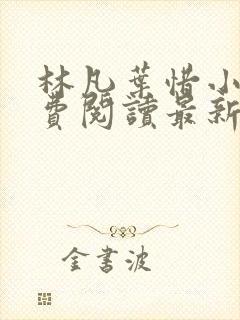 林凡葉惜小
費閱讀最新
金書波